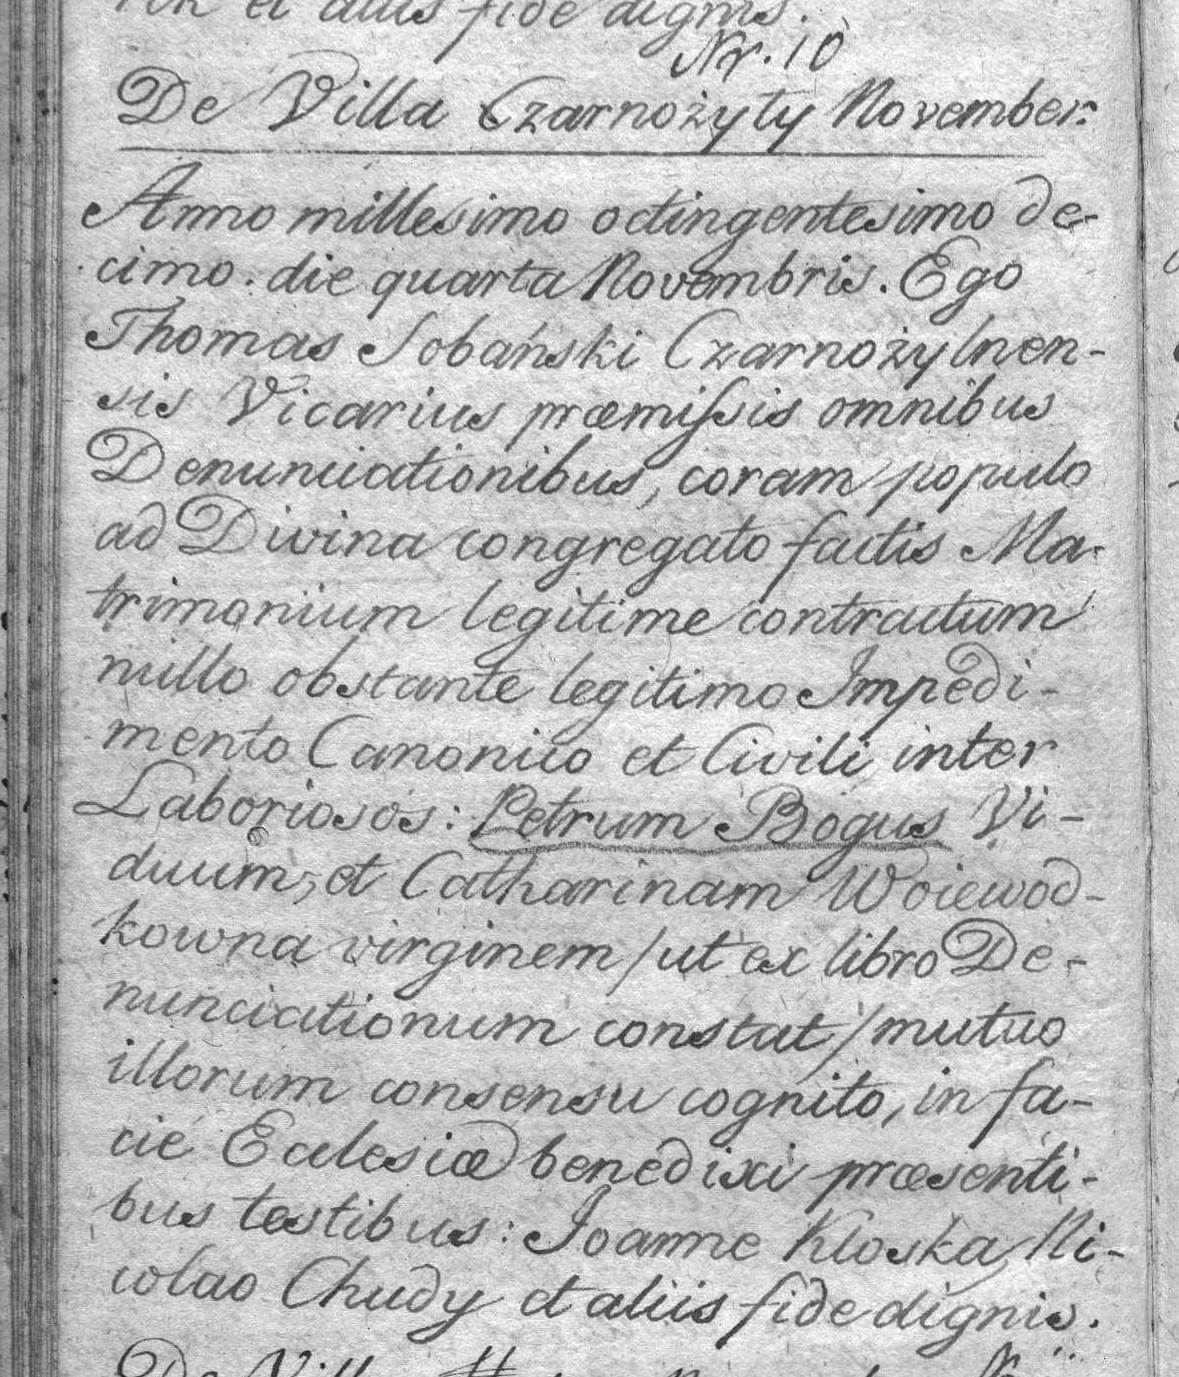 et aliis fide dignis.
Nr. 10
De Villa Czarnożyły November.
Anno millesimo octingentesimo de-
cimo. die quarta Novembris. Ego
Thomas Sobański Czarnożylnen-
sis Vicarius præmissis omnibus
Denunciationibus, coram populo
ad Divina congregato factis Ma-
trimonium legitime contractum
nullo obstante legitimo Impedi-
mento Canonico et Civili inter
Laboriosos: Petrum Bogus Vi-
duum, et Catharinam Woiewod-
kowna virginem / ut ex libro De-
nunciationum constat / mutuo
illorum consensu cognito, in fa-
cie Ecclesiæ benedixi præsenti-
bus testibus: Joanne Kloska, Ni-
colao Chudy et aliis fide dignis.
De Villa